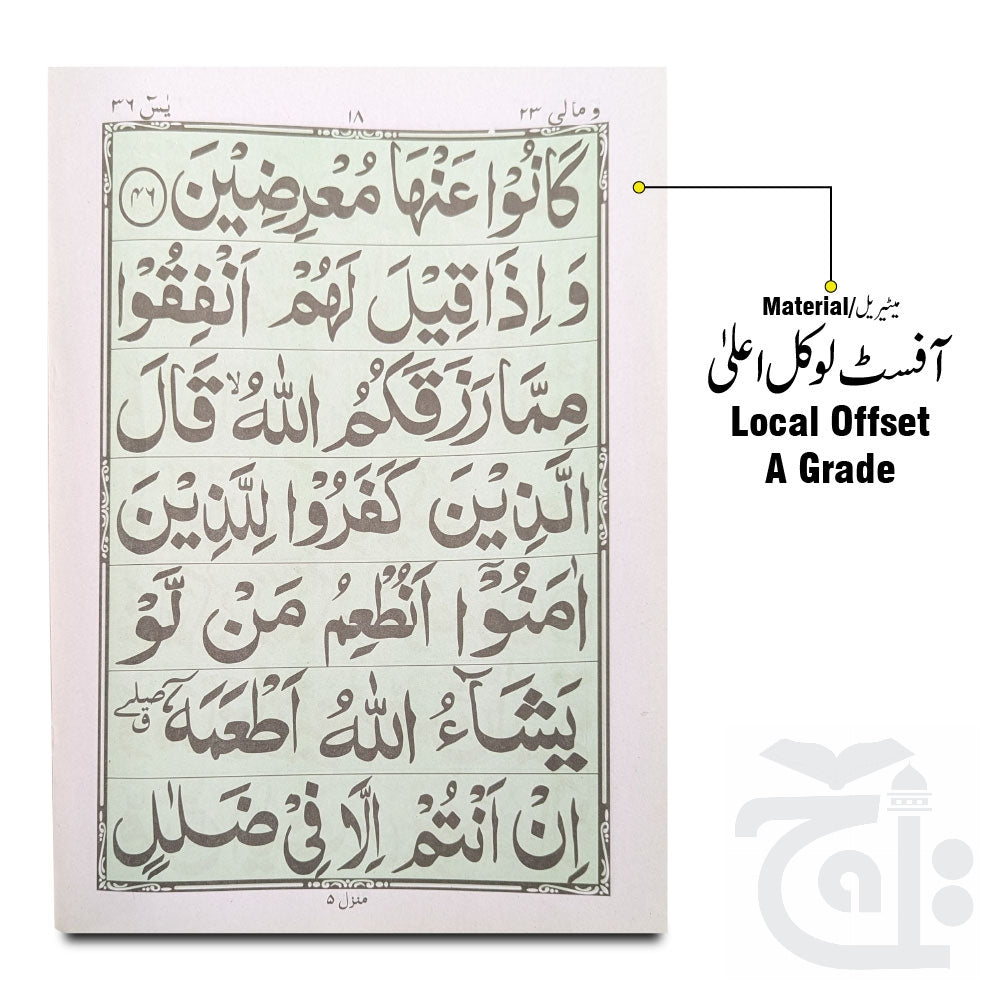 ومالی ۲۳
۱۸
یٰسٓ ۳۶
كَانُوْا عَنْهَا مُعْرِضِيْنَ ۴۶
وَ اِذَا قِيْلَ لَهُمْ اَنْفِقُوْا
مِمَّا رَزَقَكُمُ اللّٰهُ ۙ قَالَ
الَّذِيْنَ كَفَرُوْا لِلَّذِيْنَ
اٰمَنُوْۤا اَنُطْعِمُ مَنْ لَّوْ
يَشَآءُ اللّٰهُ اَطْعَمَهٗۤ ق صلے
اِنْ اَنْتُمْ اِلَّا فِيْ ضَلٰلٍ
منزل ۵
Material/میٹیریل
آفسٹ لوکل اعلیٰ
Local Offset
A Grade
تاج